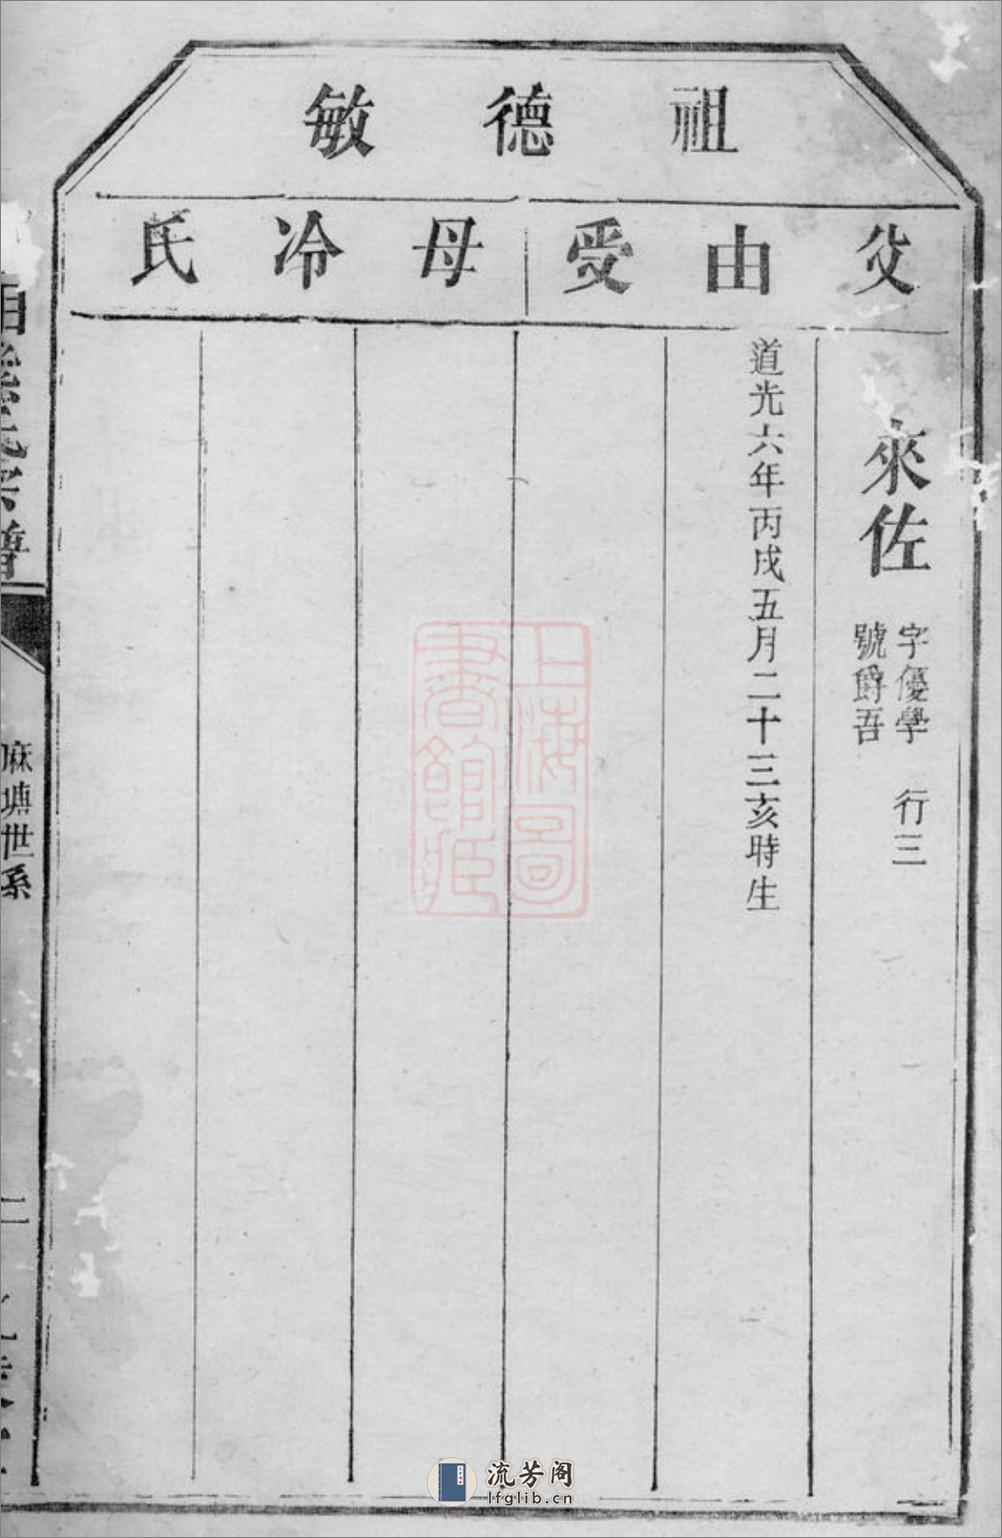 祖德敏
父由受
母冷氏
來佐
字優學 行三
號爵吾
道光六年丙戌五月二十三亥時生
宗譜
麻塘世系
上海圖書館藏
流芳阁
lfglib.cn